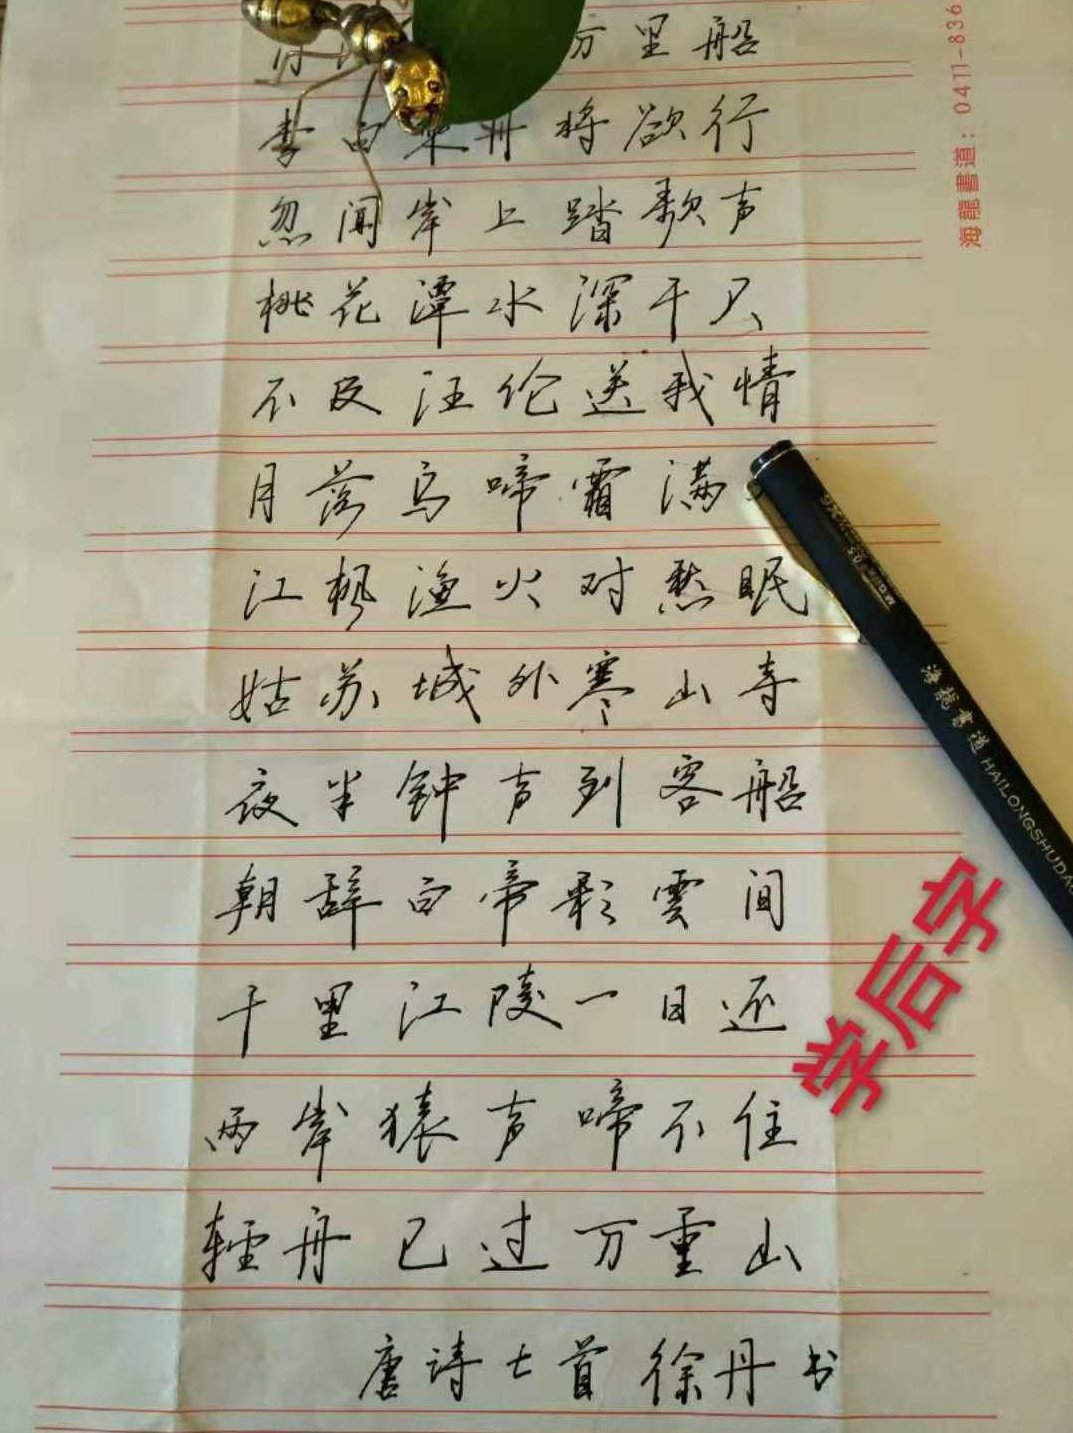 万里船
李白乘舟将欲行
忽闻岸上踏歌声
桃花潭水深千尺
不及汪伦送我情
月落乌啼霜满
江枫渔火对愁眠
姑苏城外寒山寺
夜半钟声到客船
朝辞白帝彩雲间
千里江陵一日还
两岸猿声啼不住
轻舟已过万重山
唐诗七首 徐丹书
海龍書道：0411-836
海龙书道 HAILONGSHUDAO
学后字